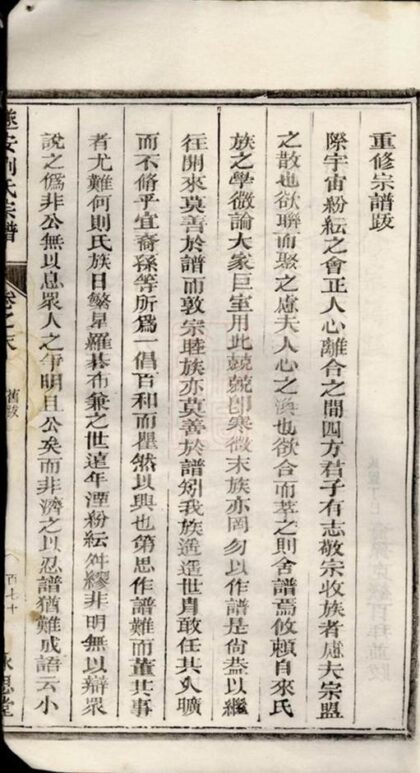 重修宗譜跋
際宇宙紛紜之會正人心離合之間四方君子有志敬宗收族者慮夫宗盟
之散也欲聯而聚之慮夫人心之渙也欲合而萃之則舍譜焉攸賴自來氏
族之學微論大家巨室用此兢兢卽寒微末族亦罔勿以作譜是尙蓋以繼
往開來莫善於譜而敦宗睦族亦莫善於譜矧我族遙遙世胄敢任其久曠
而不脩乎宜裔孫等所爲一倡百和而瞿然以興也第思作譜難而董其事
者尤難何則氏族日繁星羅棊布兼之世遠年湮紛紜舛繆非明無以辯眾
說之僞非公無以息眾人之爭明且公矣而非濟之以忍譜猶難成語云小
遂安劉氏宗譜
卷之末
舊跋
百七十